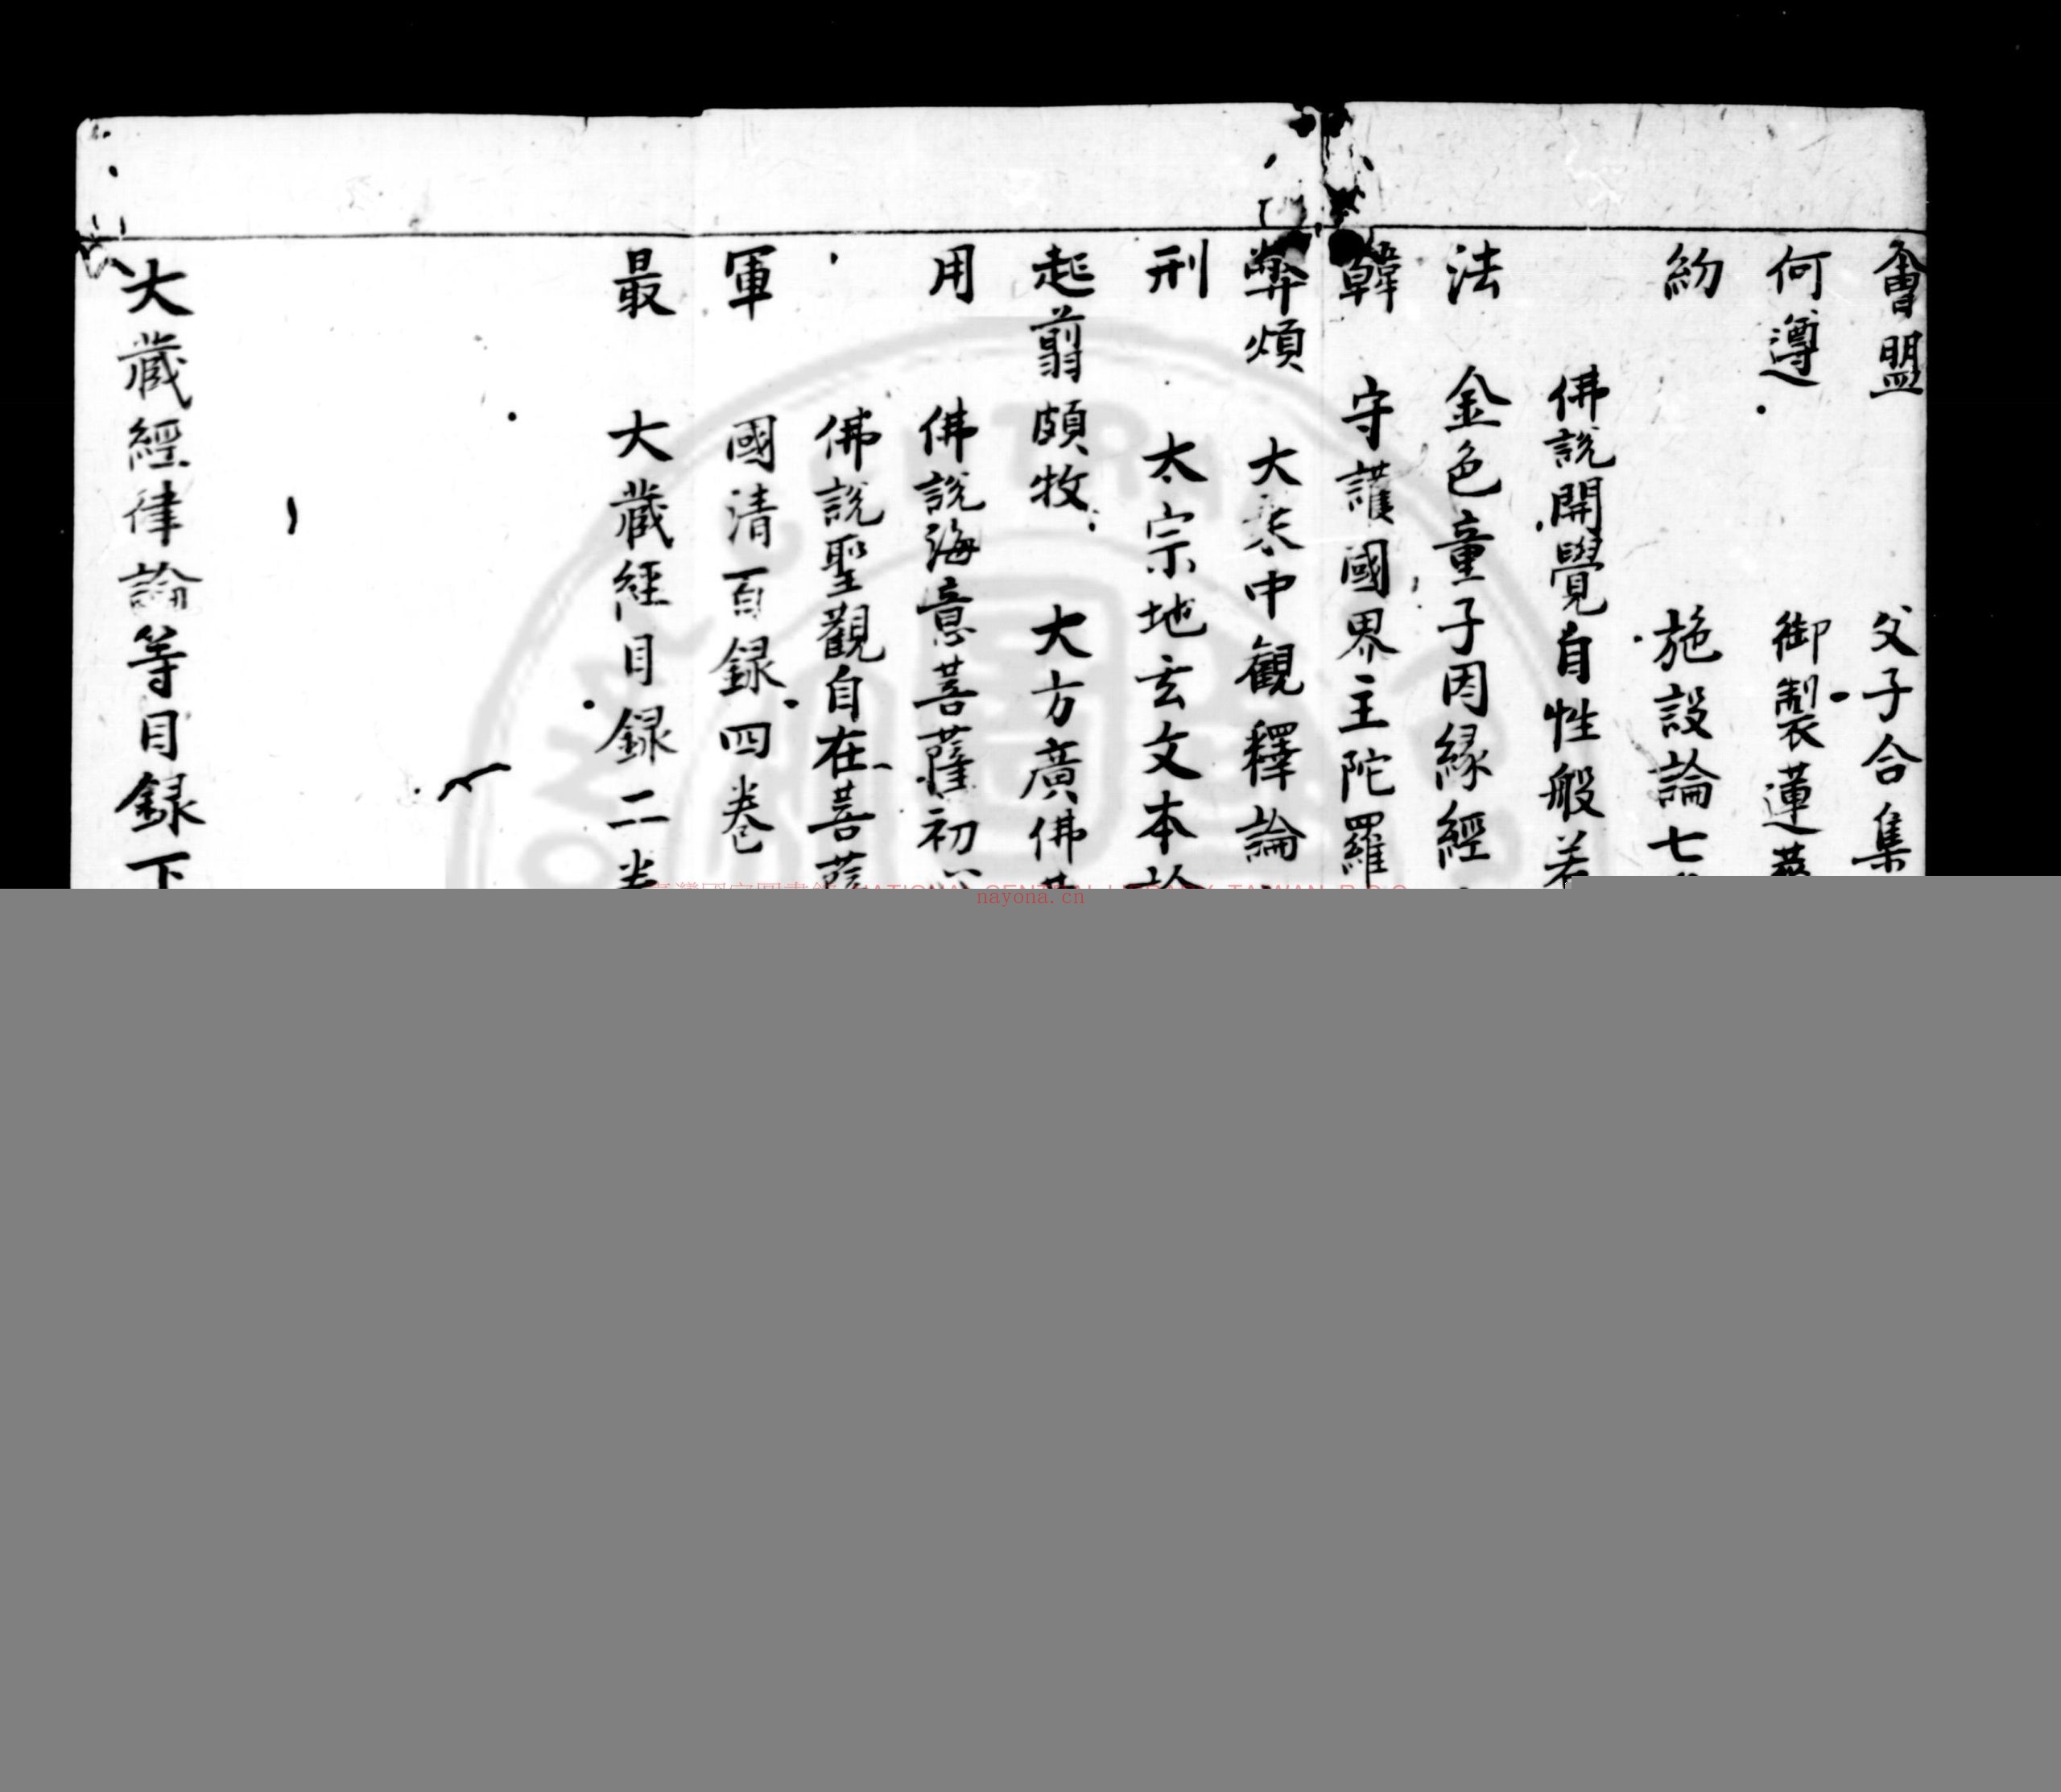 會盟 父子合集
何遵 御製蓮華
紛 施設論七
佛說開覺自性般若
法 金色童子因緣經
韓 守護國界主陀羅
弊煩 大乘中觀釋論
刑 太宗地玄文本論
起翦頗牧 大方廣佛華
用 佛說海意菩薩初
佛說聖觀自在菩薩
軍 國清百録四卷
最 大藏經目録二卷
大藏經律論等目録下
nayona.cn